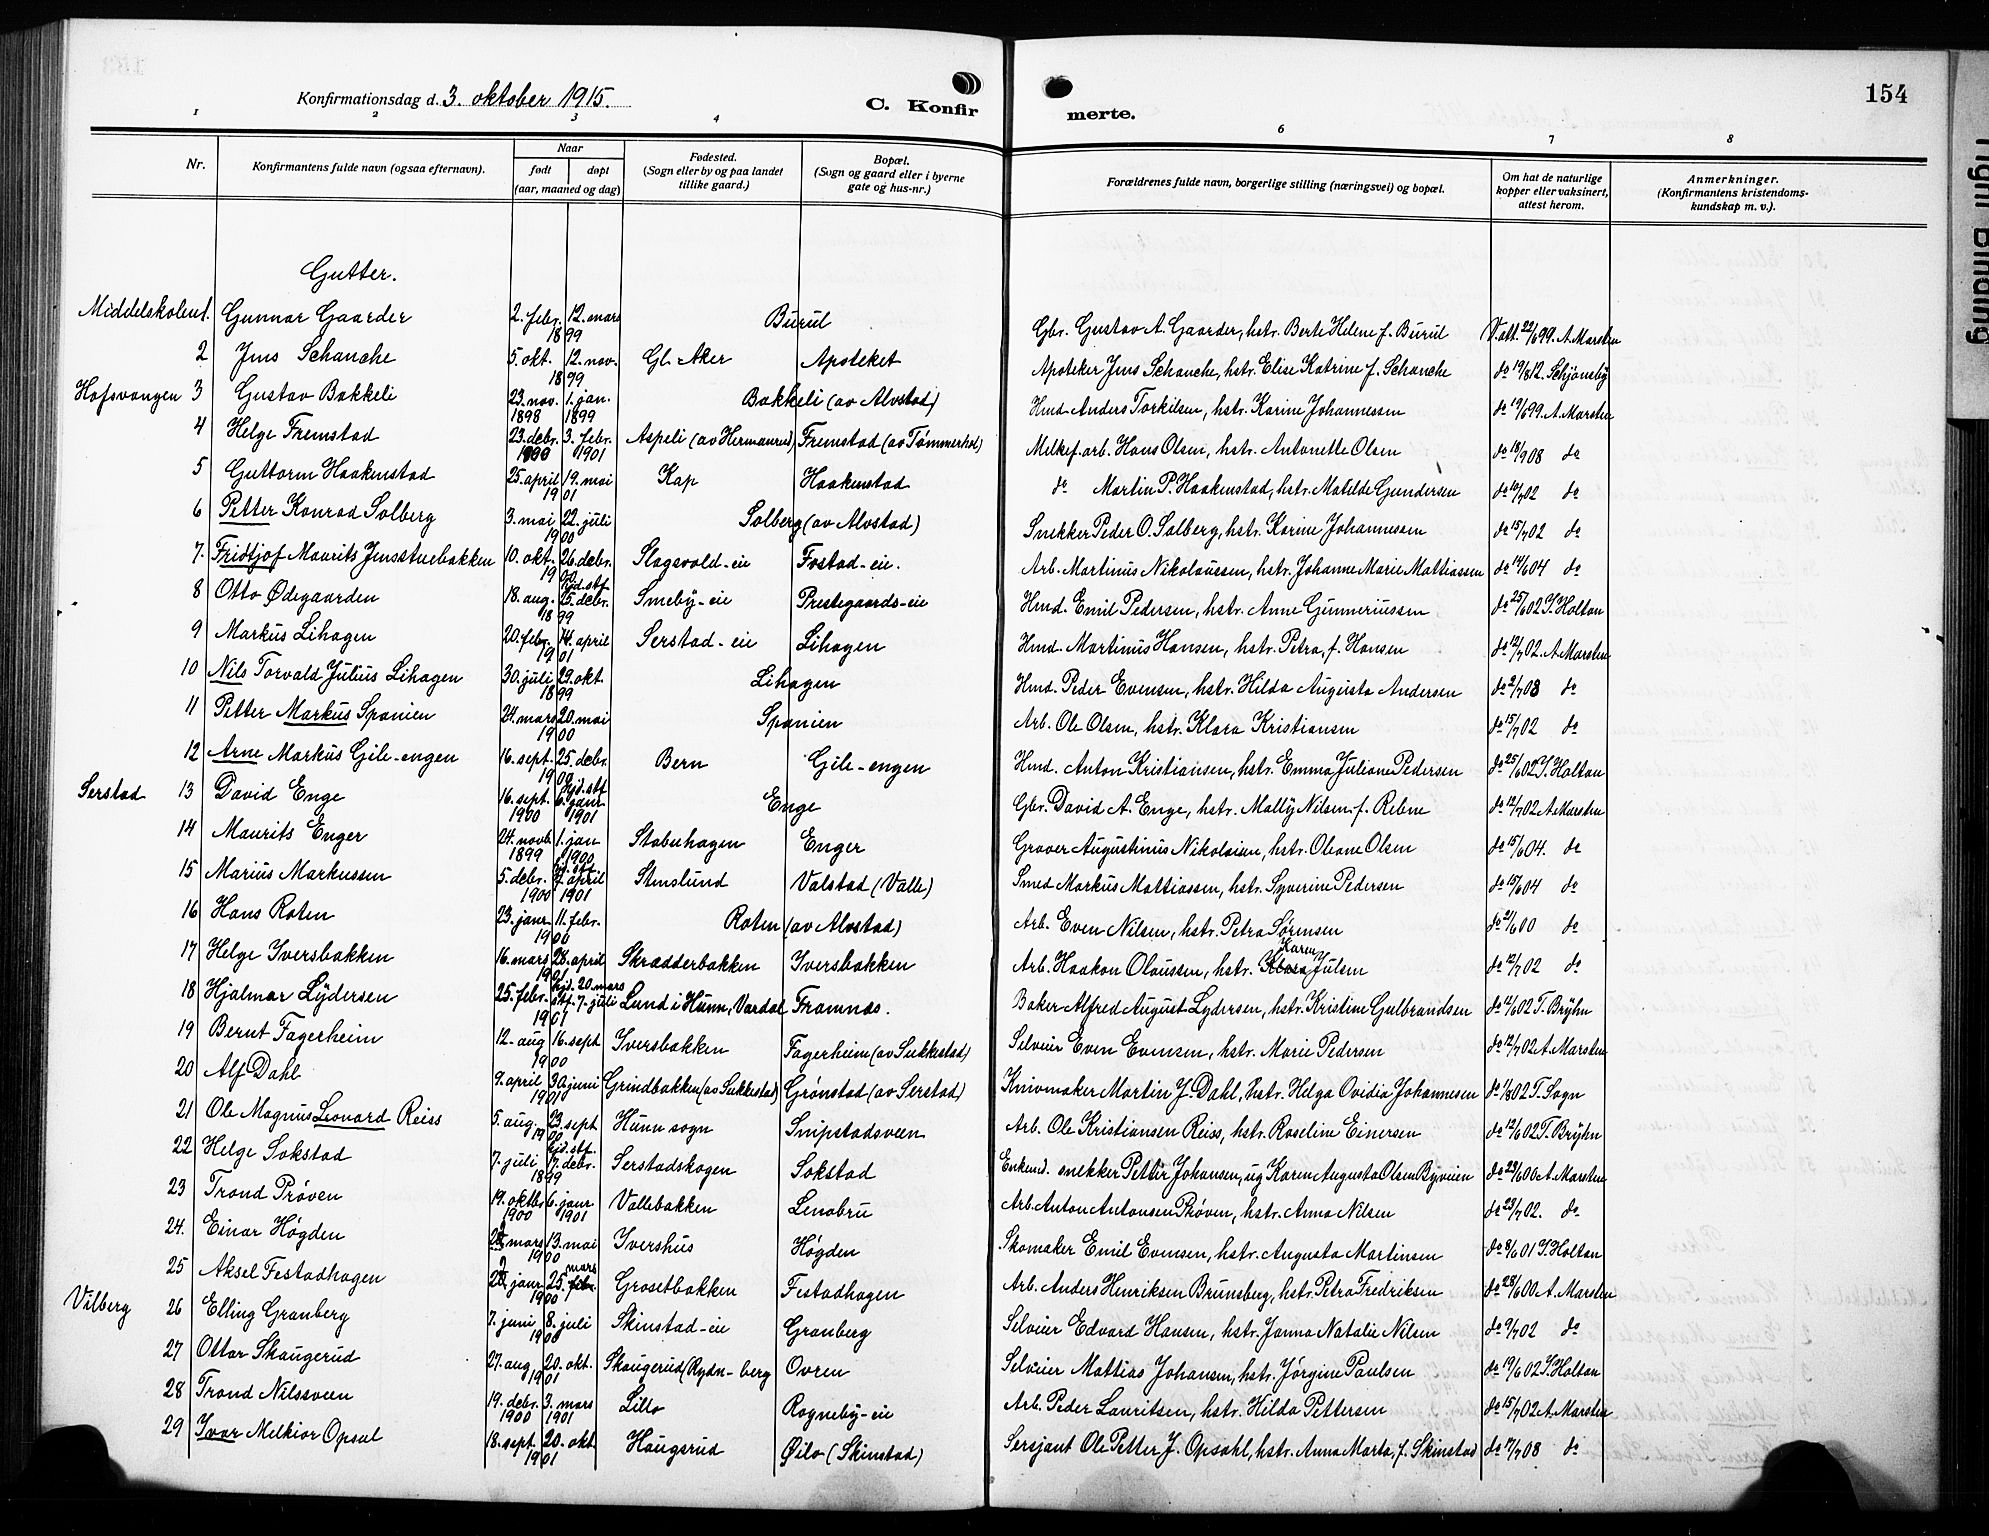 154
Konfirmationsdag d. 3. oktober 1915.
C. Konfirmerte.
1 2 3 4 5 6 7 8
Nr. Konfirmantens fulde navn (ogsaa efternavn). Naar født døpt (aar, maaned og dag) Fødested. (Sogn eller by og paa landet tillike gaard.) Bopæl. (Sogn og gaard eller i byerne gate og hus-nr.) Forældrenes fulde navn, borgerlige stilling (næringsvei) og bopæl. Om hat de naturlige kopper eller vaksinert, attest herom. Anmerkninger. (Konfirmantens kristendomskundskap m. v.).
Gutter.
Middelskolen 1. Gunnar Gaarder 2. febr. 12. mars 1899 Burul Gbr. Gustav A. Gaarder, hstr. Berte Helene f. Burul V. att. 22/6 99. A. Marsten
2 Jens Schanche 5. okt. 12. nov. 1899 Gl. Aker Apoteket Apoteker Jens Schanche, hstr. Elise Katrine f. Schanche do 19/8 12. Schjønsby
Hofsvangen 3 Gustav Bakkeli 23. nov. 1898 1. jan. 1899 Bakkeli (av Alvstad) Hmd. Anders Torkilsen, hstr. Karine Johannessen do 19/6 99. A. Marsten
4 Helge Fremstad 23. debr. 1900 3. febr. 1901 Aspeli (av Hermanrud) Fremstad (av Tømmerhol) Melkef. arb. Hans Olsen, hstr. Antonette Olsen do 18/9 08 do
5 Guttorm Haakenstad 25. april 19. mai 1901 Kap Haakenstad do Martin P. Haakenstad, hstr. Matilde Gundersen do 10/7 02 do
6 Petter Konrad Solberg 3. mai 22. juli 1900 Solberg (av Alvstad) Snekker Peder O. Solberg, hstr. Karine Johannessen do 15/7 02 do
7. Fridtjof Maurits Jensstuebakken 10. okt. 26. debr. 1900 Slagsvold-eie Fostad-eie. Arb. Martinus Nikolaussen, hstr. Johanne Marie Mattiassen do 14/6 04 do
8 Otto Ødegaarden 18. aug. hjd. stf. 25. debr. 1899 Smeby-eie Prestegaards-eie Hmd. Emil Pedersen, hstr. Anne Gunneriussen do 25/6 02 J. Holton
9 Markus Lihagen 20. febr. 14. april 1901 Serstad-eie Lihagen Hmd. Martinus Hansen, hstr. Petra, f. Hansen do 12/7 02. A. Marsten
10 Nils Torvald Julius Lihagen 30. juli 29. okt. 1899 Lihagen Hmd. Peder Evensen, hstr. Hilda Augusta Andersen do 2/7 08 do
11 Petter Markus Spanien 24. mars 20. mai 1900 Spanien Arb. Ole Olsen, hstr. Klara Kristiansen do 15/7 02 do
12 Arne Markus Gile-engen 16. sept. 25. debr. 1900 Bern Gile-engen Hmd. Anton Kristiansen, hstr. Emma Juliane Pedersen do 25/6 02 J. Holton
Serstad 13 David Enge 16. sept. 1900 hjd. stf. 6. janr 1901 Enge Gbr. David A. Enge, hstr. Mally Nilsen f. Rebne do 12/7 02 A. Marsten
14 Maurits Enger 24. novb. 1899 1. jan 1900 Stabuhagen Enger Graver Augustinus Nikolaisen, hstr. Oleane Olsen do 15/6 04. do
15 Marius Markussen 5. debr. 1900 hjd. stf. 7. april 1901 Stenslund Valstad (Valle) Smed Markus Mattiassen, hstr. Syverine Pedersen do 15/6 04 do
16 Hans Roten 23. janr 11. febr. 1900 Roten (av Alvstad) Arb. Even Nilsen, hstr. Petra Sørensen do 2/6 00 do
17 Helge Iversbakken 16. mars 28. april 1901 Skrædderbakken Iversbakken Arb. Haakon Olaussen, hstr. Klara Karen Julsen do 12/7 02 do
18 Hjalmar Lydersen 25. febr. hjd. 20. mars stf. 7. juli 1901 Lund i Hunn, Vardal Framnes. Baker Alfred August Lydersen, hstr. Kristine Gulbrandsen do 12/6 02 T. Bryhn
19 Bernt Fagerheim 12. aug 16. sept 1900 Iversbakken Fagerheim (av Sukkestad) Selveier Even Evensen, hstr. Marie Pedersen do 12/7 02 A. Marsten
20 Alf Dahl 9. april 30. juni 1901 Grindbakken (av Sukkestad) Grønstad (av Serstad) Knivmaker Martin J. Dahl, hstr. Helga Ovidia Johannesen do 1/8 02 T. Sogn
21 Ole Magnus Leonard Reiss 5. aug. 23. sept 1900 Hunn sogn Snipstadsveen Arb. Ole Kristiansen Reiss, hstr. Roseline Einersen do 12/6 02 T. Bryhn
22 Helge Sokstad 7. juli hjd. stf. 17. debr. 1899 Serstadskogen Sokstad Enkemd. snekker Petter Johansen, ug Karen Augusta Olsen Byveien do 29/6 00 A. Marsten
23 Trond Prøven 19. oktbr 1900 6. janr 1901 Vallebakken Lenabru Arb. Anton Antonsen Prøven, hstr. Anna Nilsen do 23/7 02. do
24. Einar Høgden mars 13. mai 1900 Ivershus Høgden Skomaker Emil Evensen, hstr. Augusta Martinsen do 8/6 01 J. Holton
25 Aksel Festadhagen janr 25. febr. mars 1900 Grosetbakken Festadhagen Arb. Anders Henriksen Brunsberg, hstr. Petra Fredriksen do 28/6 00 A. Marsten
Vilberg 26 Elling Granberg 7. juni 8. juli 1900 Skinstad-eie Granberg Selveier Edvard Hansen, hstr. Janna Natalie Nilsen do 9/7 02 do
27 Ottar Skaugerud 27. aug 20. okt. 1901 Skaugerud (Rydn-berg Ovren Selveier Mattias Johansen, hstr. Jørgine Paulsen do 19/6 02 J. Holton
28 Trond Nilssveen 19. debr. 1900 3. mars 1901 Lillo Rogneby-eie Arb. Peder Lauritsen, hstr. Hilda Pettersen do 15/7 02 A. Marsten
29 Ivar Melkior Opsal 18. sept 20. okt 1901 Haugsrud Øilo (Skinstad) Sersjant Ole Petter J. Opsahl, hstr. Anna Marta, f. Skinstad do 7/7 08 do